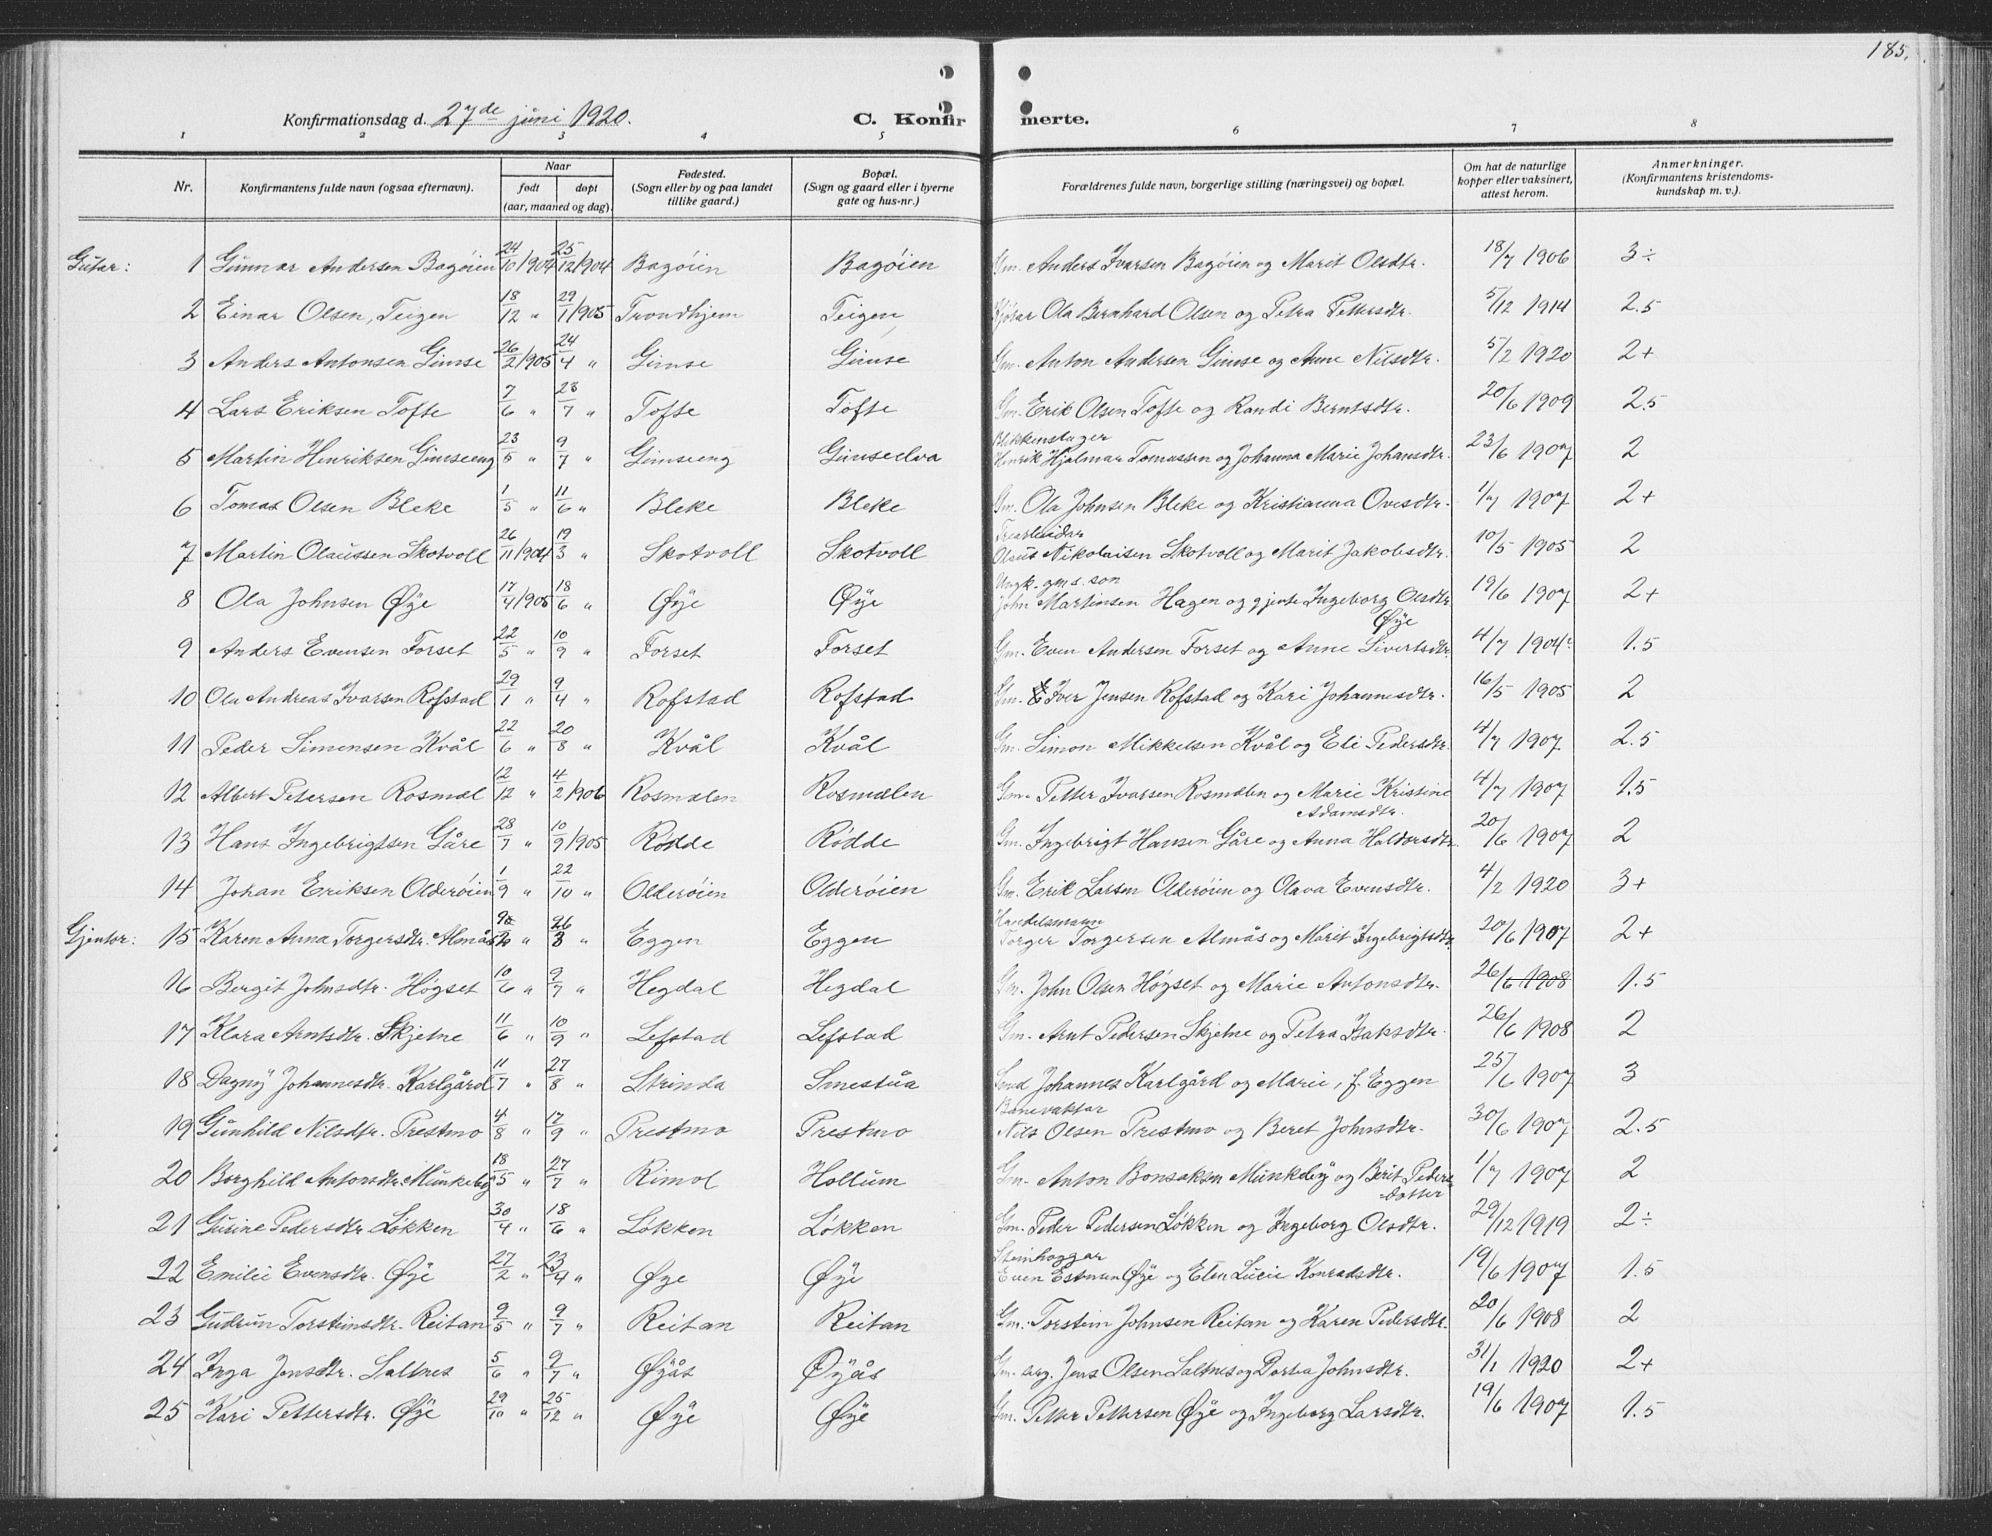 185.
Konfirmationsdag d. 27de juni 1920. C. Konfirmerte.
1 2 3 4 5 6 7 8
Nr. Konfirmantens fulde navn (ogsaa efternavn). Naar født døpt (aar, maaned og dag). Fødested. (Sogn eller by og paa landet tillike gaard.) Bopæl. (Sogn og gaard eller i byerne gate og hus-nr.) Forældrenes fulde navn, borgerlige stilling (næringsvei) og bopæl. Om hat de naturlige kopper eller vaksinert, attest herom. Anmerkninger. (Konfirmantens kristendomskundskap m. v.).
Gutar: 1 Gunnar Andersen Bagøien 24/10 1904 25/12 1904 Bagøien Bagøien Gm. Anders Ivarsen Bagøien og Marit Olsdtr. 18/7 1906 3÷
2 Einar Olsen, Teigen 18/12 " 29/1 1905 Trondhjem Teigen Ola Bernhard Olsen og Petra Pettersdtr. 5/12 1914 2.5
3 Anders Antonsen Gimse 26/2 1905 24/4 " Gimse Gimse Gm. Anton Andersen Gimse og Anne Nilsdtr. 5/2 1920 2+
4 Lars Eriksen Tofte 7/6 " 23/7 " Tofte Tofte Gm. Erik Olsen Tofte og Randi Berntsdtr. 20/6 1909 2.5
5 Martin Henriksen Gimseeng 23/5 " 9/7 " Gimseeng Gimseelva Blekkenslager Henrik Hjalmar Tomassen og Johanna Marie Johansdtr. 23/6 1907 2
6 Tomas Olsen Bleke 1/5 " 11/6 " Bleke Bleke Gm. Ola Johnsen Bleke og Kristianna Ovesdtr. 1/7 1907 2+
7 Martin Olaussen Skotvoll 26/11 1904 19/3 " Skotvoll Skotvoll Trearbeidar Olaus Nikolaisen Skotvoll og Marit Jakobsdtr. 10/5 1905 2
8 Ola Johnsen Øye 17/4 1905 18/6 " Øye Øye Ungk. gm.s. son John Martinsen Hagen og gjente Ingeborg Olsdtr. Øye 19/6 1907 2+
9 Anders Evensen Forset 22/5 " 10/9 " Forset Forset Gm. Even Andersen Forset og Anne Sivertsdtr. 4/7 1904 1.5
10 Ola Andreas Ivarsen Rofstad 29/1 " 9/4 " Rofstad Rofstad Gm. Iver Jensen Rofstad og Kari Johannesdtr. 16/5 1905 2
11 Peder Simonsen Kvål 22/6 " 20/8 " Kvål Kvål Gm. Simon Mikkelsen Kvål og Eli Pedersdtr. 4/7 1907 2.5
12 Albert Petersen Rosmæl 12/12 " 4/2 1906 Rosmælen Rosmælen Gm. Petter Ivarsen Rosmælen og Marie Kristine Adamsdtr. 4/7 1907 1.5
13 Hans Ingebrigtsen Gåre 28/7 " 10/9 1905 Rødde Rødde Gm. Ingebrigt Hansen Gåre og Anna Haldorsdtr. 20/6 1907 2
14 Johan Eriksen Olderøien 1/9 " 22/10 " Olderøien Olderøien Gm. Erik Larsen Olderøien og Olava Evensdtr. 4/2 1920 3+
Gjentor: 15 Karen Anna Torgersdtr. Almås " 26/3 " Eggen Eggen Handelsmann Torger Torgersen Almås og Marit Ingebrigtsdtr. 20/6 1907 2+
16 Bergit Johnsdtr. Høgset 10/6 " 9/7 " Hegdal Hegdal Gm. John Olsen Høgset og Marie Antonsdtr. 26/6 1908 1.5
17 Klara Arntsdtr. Skjetne 11/6 " 10/9 " Lefstad Lefstad Gm. Arnt Pedersen Skjetne og Petra Isaksdtr. 26/6 1908 2
18 Dagny Johannesdtr. Karlgård 11/7 " 27/8 " Strinda Smestua Smed Johannes Karlgård og Marie, f. Eggen 25/6 1907 3
19 Gunhild Nilsdtr. Prestmo 4/8 " 17/9 " Prestmo Prestmo Banevaktar Nils Olsen Prestmo og Beret Johnsdtr. 30/6 1907 2.5
20 Borghild Antonsdtr. Munkeby 18/5 " 27/7 " Rimol Hollum Gm. Anton Bonsaksen Munkeby og Berit Peders dotter 1/7 1907 2
21 Gurine Pedersdtr. Løkken 30/4 " 18/6 " Løkken Løkken Gm. Peder Pedersen Løkken og Ingeborg Olsdtr. 29/12 1919 2÷
22 Emilie Evensdtr. Øye 27/2 " 23/4 " Øye Øye Steinhoggar Even Estensen Øye og Elen Lucie Konradsdtr. 19/6 1907 1.5
23 Gudrun Torsteinsdtr. Reitan 9/5 " 9/7 " Reitan Reitan Gm. Torstein Johnsen Reitan og Karen Pedersdtr. 20/6 1908 2
24 Inga Jensdtr. Saltnes 5/6 " 9/7 " Øyås Øyås Gm. arg. Jens Olsen Saltnes og Dortea Johnsdtr. 31/1 1920 2+
25 Kari Pettersdtr. Øye 29/10 " 25/12 " Øye Øye Gm. Petter Pettersen Øye og Ingeborg Larsdtr. 19/6 1907 1.5